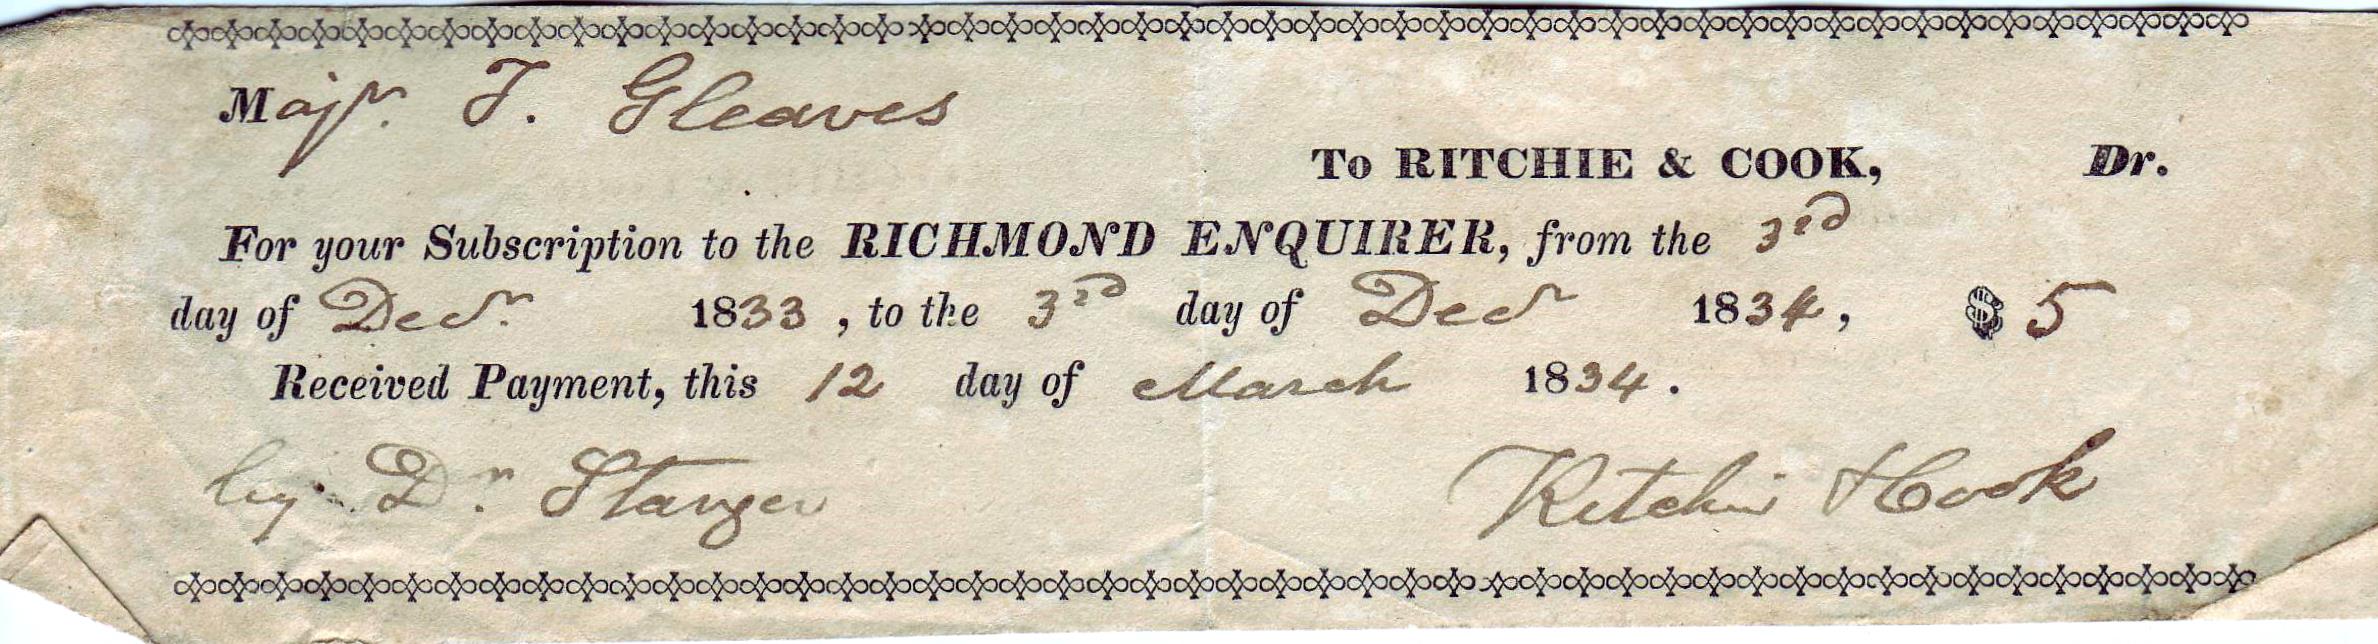 Majr. T. Gleaves
To RITCHIE & COOK, Dr.
For your Subscription to the RICHMOND ENQUIRER, from the 3rd
day of Decr. 1833, to the 3rd day of Decr 1834, $ 5
Received Payment, this 12 day of March 1834.
by Dr. Stanger Ritchie & Cook